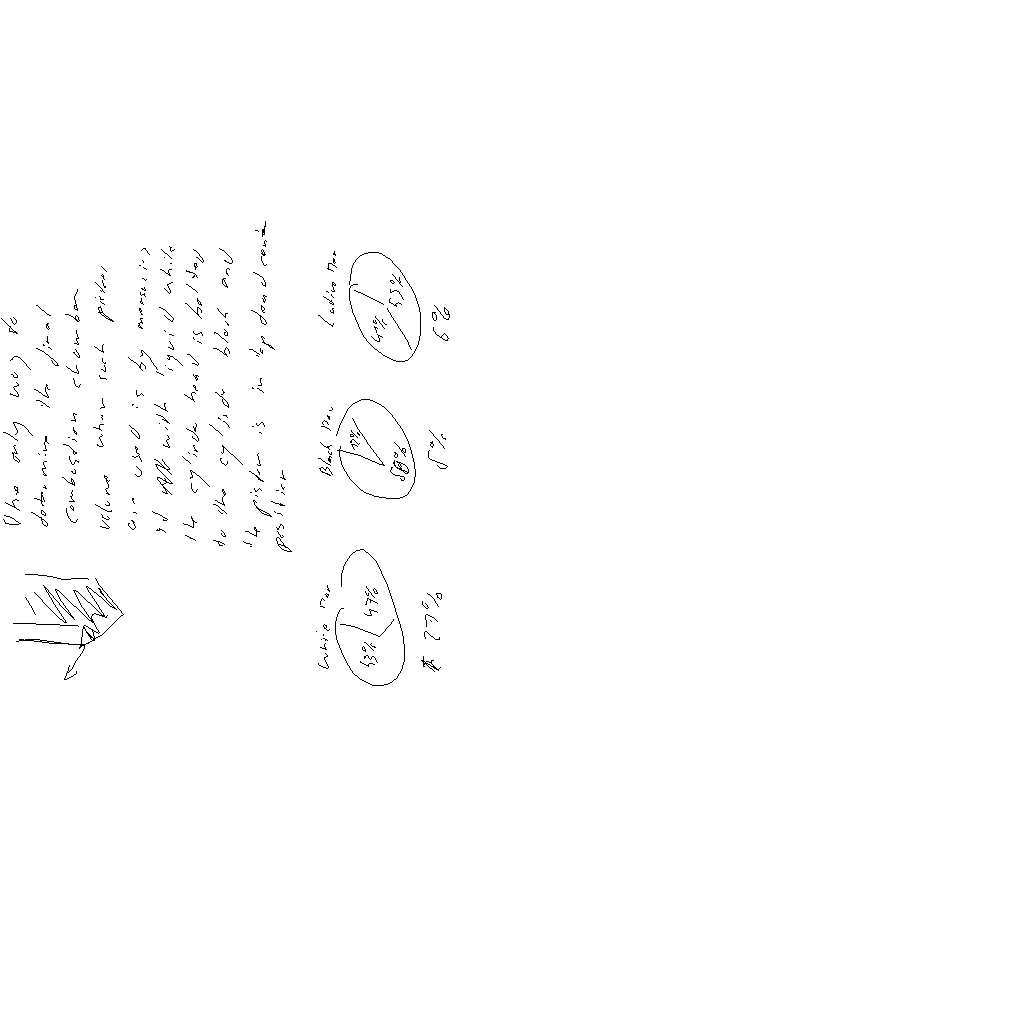 The only way to
determine the final
combustion chamber
volume when such pistons
are used is by measuring
it with liquid while
the cylinder head is bolted
to the cylinder block and
the piston is in top dead center
position
White Men
43%
47%
27%
Black Men
12%
58%
5%
Latino Men
41%
45%
6%